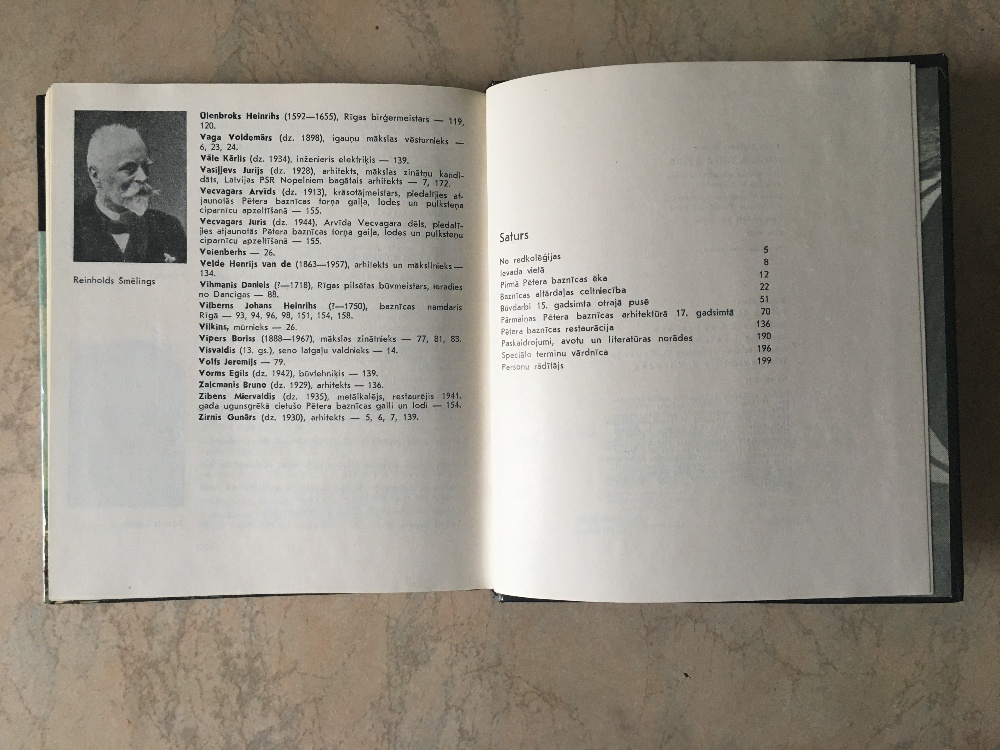 Reinholds Šmēlings
Ūlenbroks Heinrihs (1592—1655), Rīgas birģermeistars — 119,
120.
Vaga Voldemārs (dz. 1898), igauņu mākslas vēsturnieks —
6, 23, 24.
Vāle Kārlis (dz. 1934), inženieris elektriķis — 139.
Vasiļjevs Jurijs (dz. 1928), arhitekts, mākslas zinātņu kandi-
dāts, Latvijas PSR Nopelniem bagātais arhitekts — 7, 172.
Vecvagars Arvīds (dz. 1913), krāsotājmeistars, piedalījies at-
jaunotās Pētera baznīcas torņa gaiļa, lodes un pulksteņa
ciparnīcu apzeltīšanā — 155.
Vecvagars Juris (dz. 1944), Arvīda Vecvagara dēls, piedalī-
jies atjaunotās Pētera baznīcas torņa gaiļa, lodes un pulksteņu
ciparnīcu apzeltīšanā — 155.
Veienberhs — 26.
Velde Henrijs van de (1863—1957), arhitekts un mākslinieks —
134.
Vihmanis Daniels (?—1718), Rīgas pilsētas būvmeistars, ieradies
no Dancigas — 88.
Vilberns Johans Heinrihs (?—1750), baznīcas namdaris
Rīgā — 93, 94, 96, 98, 151, 154, 158.
Vilkins, mūrnieks — 26.
Vipers Boriss (1888—1967), mākslas zinātnieks — 77, 81, 83.
Visvaldis (13. gs.), seno latgaļu valdnieks — 14.
Volfs Jeremijs — 79.
Vorms Egils (dz. 1942), būvtehniķis — 139.
Zaļcmanis Bruno (dz. 1929), arhitekts — 136.
Zibens Miervaldis (dz. 1935), metālkalējs, restaurējis 1941.
gada ugunsgrēkā cietušo Pētera baznīcas gaili un lodi — 154.
Zirnis Gunārs (dz. 1930), arhitekts — 5, 6, 7, 139.
Saturs
No redkolēģijas 5
Ievada vietā 8
Pirmā Pētera baznīcas ēka 12
Baznīcas altārdaļas celtniecība 22
Būvdarbi 15. gadsimta otrajā pusē 51
Pārmaiņas Pētera baznīcas arhitektūrā 17. gadsimtā 70
Pētera baznīcas restaurācija 136
Paskaidrojumi, avotu un literatūras norādes 190
Speciālo terminu vārdnīca 196
Personu rādītājs 199